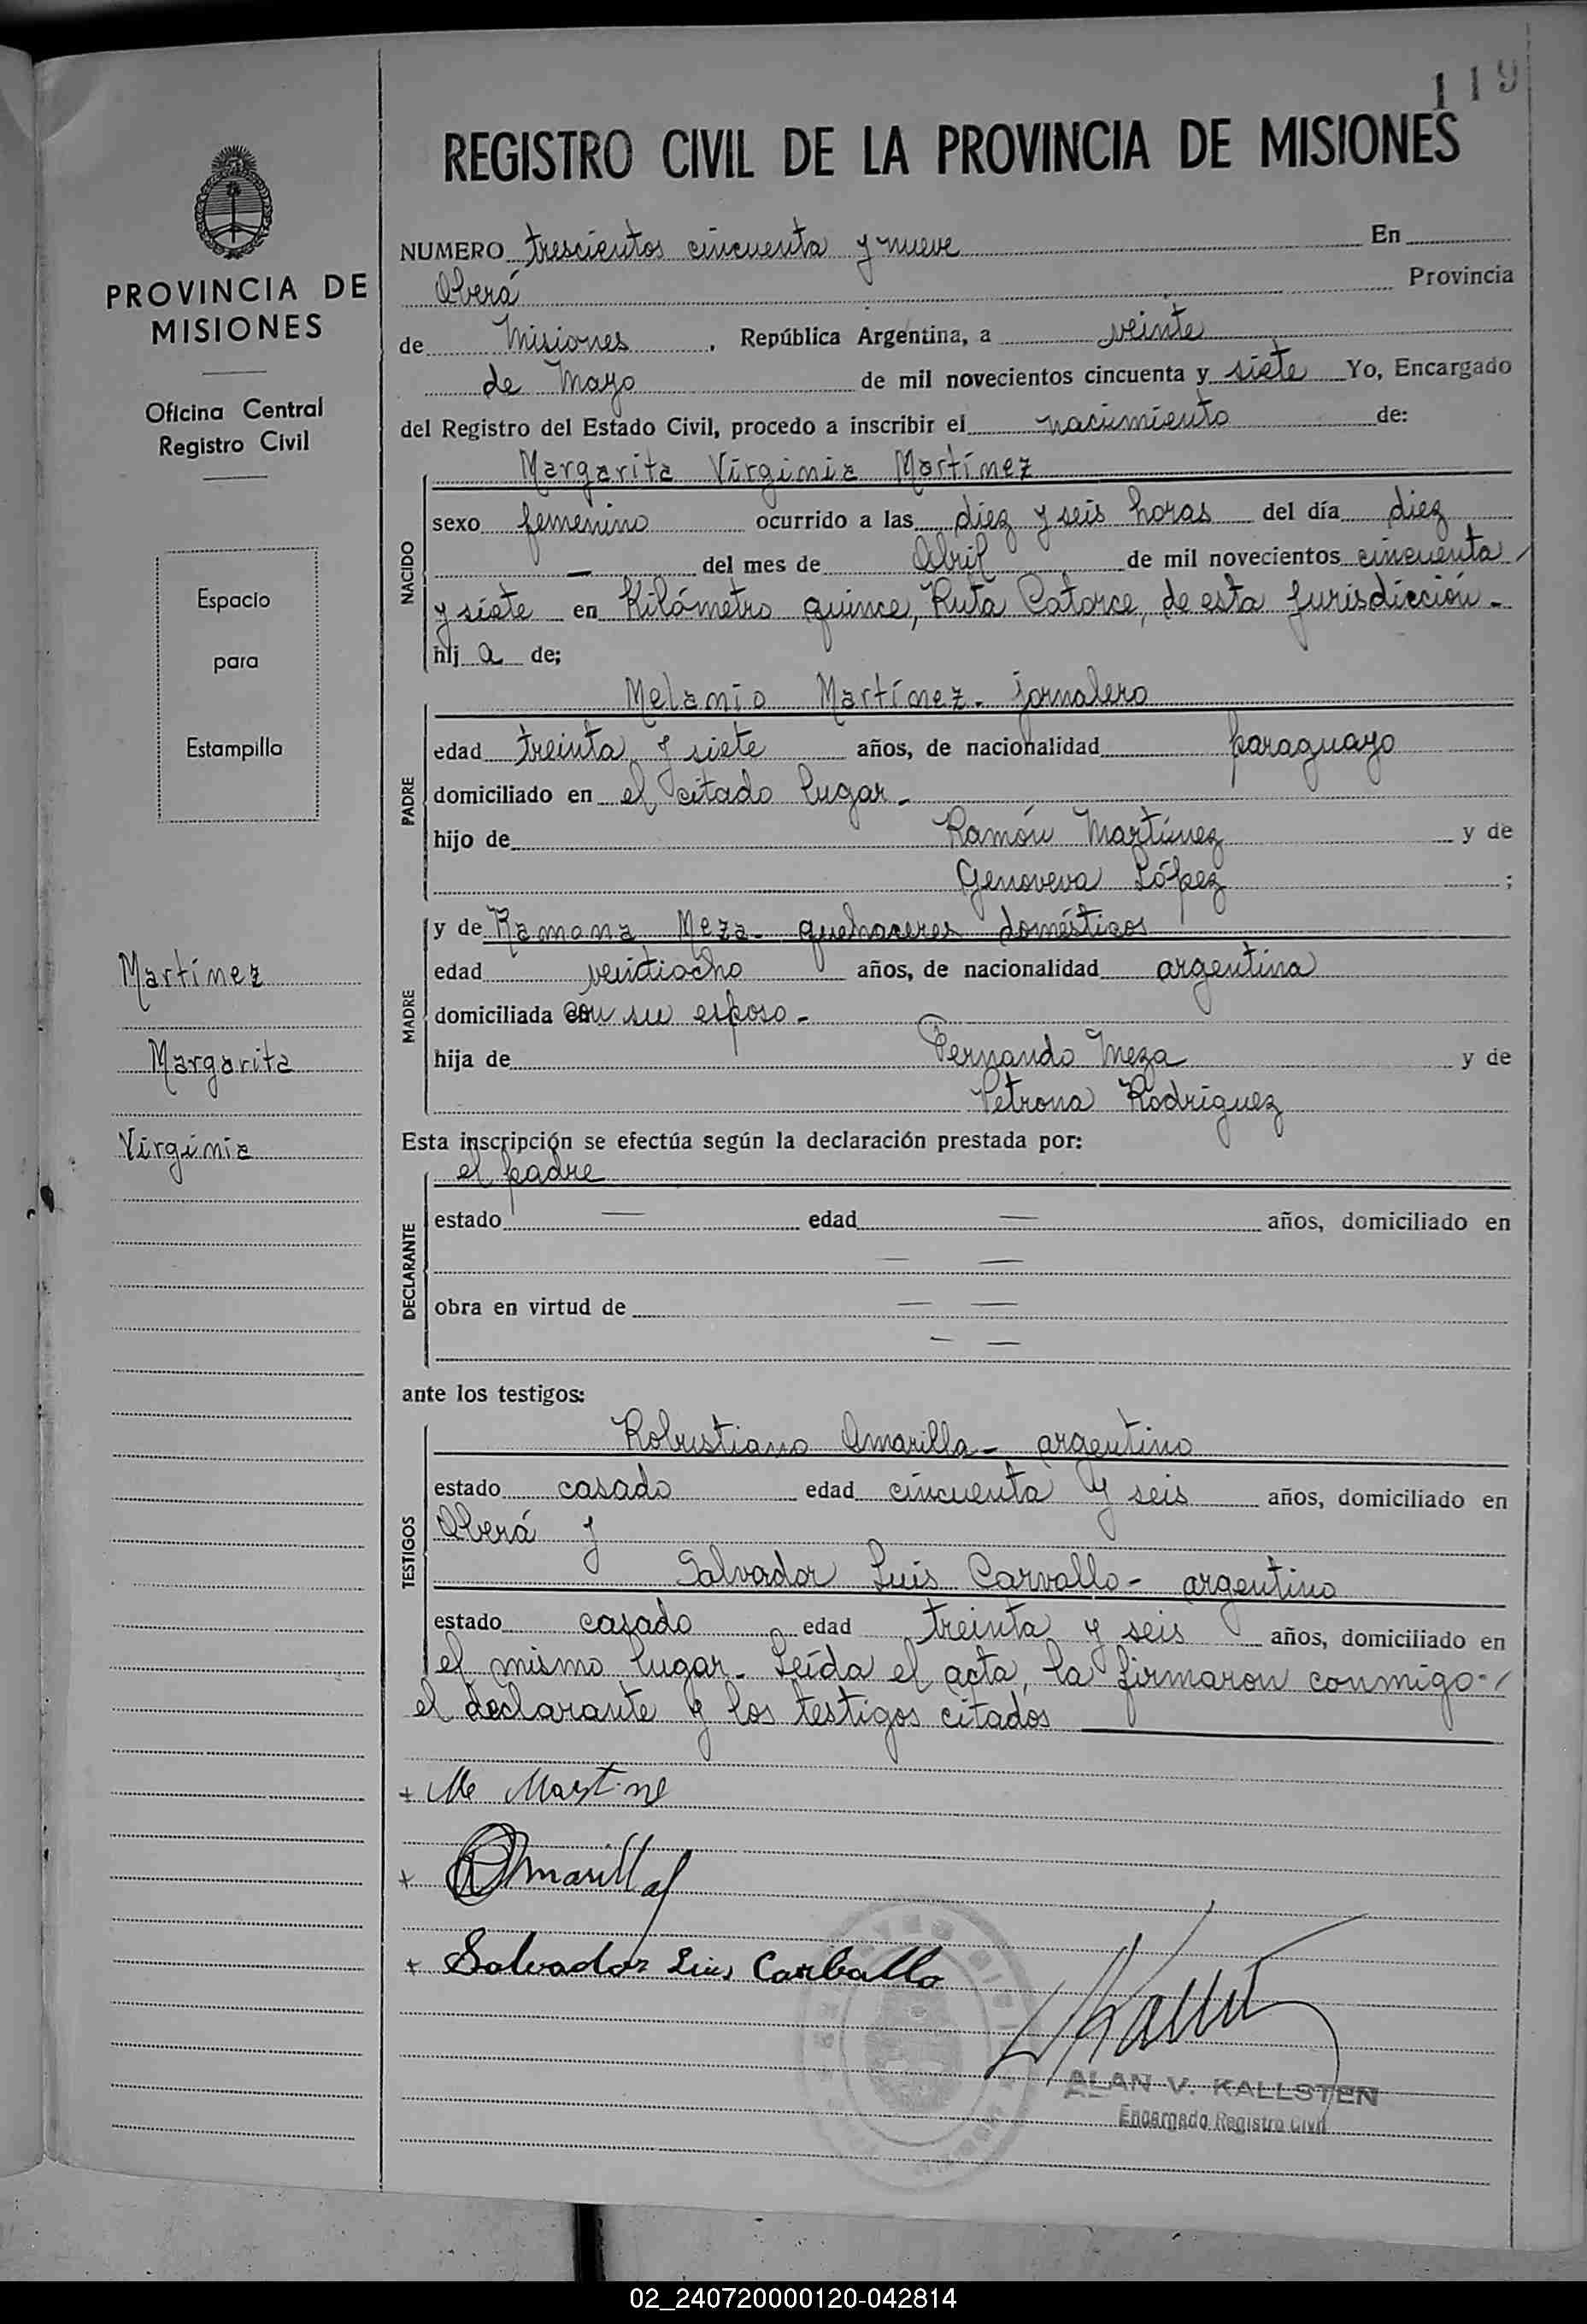 119
REGISTRO CIVIL DE LA PROVINCIA DE MISIONES
PROVINCIA DE
MISIONES
Oficina Central
Registro Civil
Espacio
para
Estampilla
Martínez
Margarita
Virginia
NUMERO trescientos cincuenta y nueve En
Oberá Provincia
de Misiones, República Argentina, a veinte
de Mayo de mil novecientos cincuenta y siete Yo, Encargado
del Registro del Estado Civil, procedo a inscribir el nacimiento de:
NACIDO
Margarita Virginia Martínez
sexo femenino ocurrido a las diez y seis horas del día diez
— del mes de Abril de mil novecientos cincuenta
y siete en Kilómetro quince, Ruta Catorce, de esta jurisdicción.-
hij a de;
PADRE
Melanio Martínez- jornalero
edad treinta y siete años, de nacionalidad paraguayo
domiciliado en el citado lugar.-
hijo de Ramón Martínez y de
Genoveva López ;
MADRE
y de Ramona Meza- quehaceres domésticos
edad veintiocho años, de nacionalidad argentina
domiciliada con su esposo.-
hija de Fernando Meza y de
Petrona Rodríguez
Esta inscripción se efectúa según la declaración prestada por:
DECLARANTE
el padre
estado — edad — años, domiciliado en
— —
obra en virtud de — —
— —
ante los testigos:
TESTIGOS
Robustiano Amarilla- argentino
estado casado edad cincuenta y seis años, domiciliado en
Oberá y
Salvador Luis Carvallo- argentino
estado casado edad treinta y seis años, domiciliado en
el mismo lugar. Leída el acta, la firmaron conmigo-
el declarante y los testigos citados
+ Me Martine
+ Amarilla
+ Salvador Luis Carballo
ALAN V. KALLSTEN
Encargado Registro Civil
02_240720000120-042814